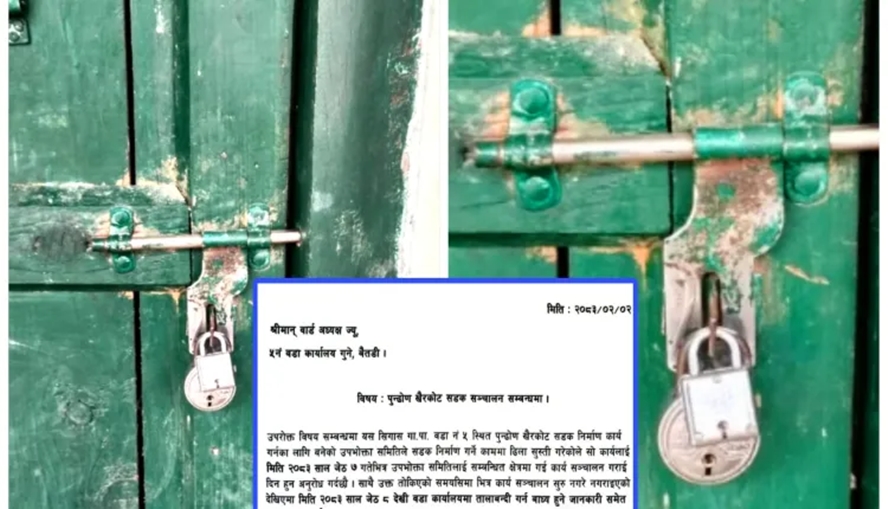 मिति : २०८३/०२/०२
श्रीमान् वार्ड अध्यक्ष ज्यू,
५नं वडा कार्यालय गुगे, बैतडी ।
विषय : पुन्द्रोण खैरकोट सडक सञ्चालन सम्बन्धमा ।
उपरोक्त विषय सम्बन्धमा यस सिगास गा.पा. वडा नं ५ स्थित पुन्द्रोण खैरकोट सडक निर्माण कार्य
गर्नका लागि बनेको उपभोक्ता समितिले सडक निर्माण गर्ने काममा ढिला सुस्ती गरेकोले सो कार्यलाई
मिति २०८३ साल जेठ ७ गतेभित्र उपभोक्ता समितिलाई सम्बन्धित क्षेत्रमा गई कार्य सञ्चालन गराई
दिन हुन अनुरोध गर्दछौ । साथै उक्त तोकिएको समयसिमा भित्र कार्य सञ्चालन सुरु नगरे नगराइएको
देखिएमा मिति २०८३ साल जेठ ८ देखी वडा कार्यालयमा तालाबन्दी गर्न बाध्य हुने जानकारी समेत